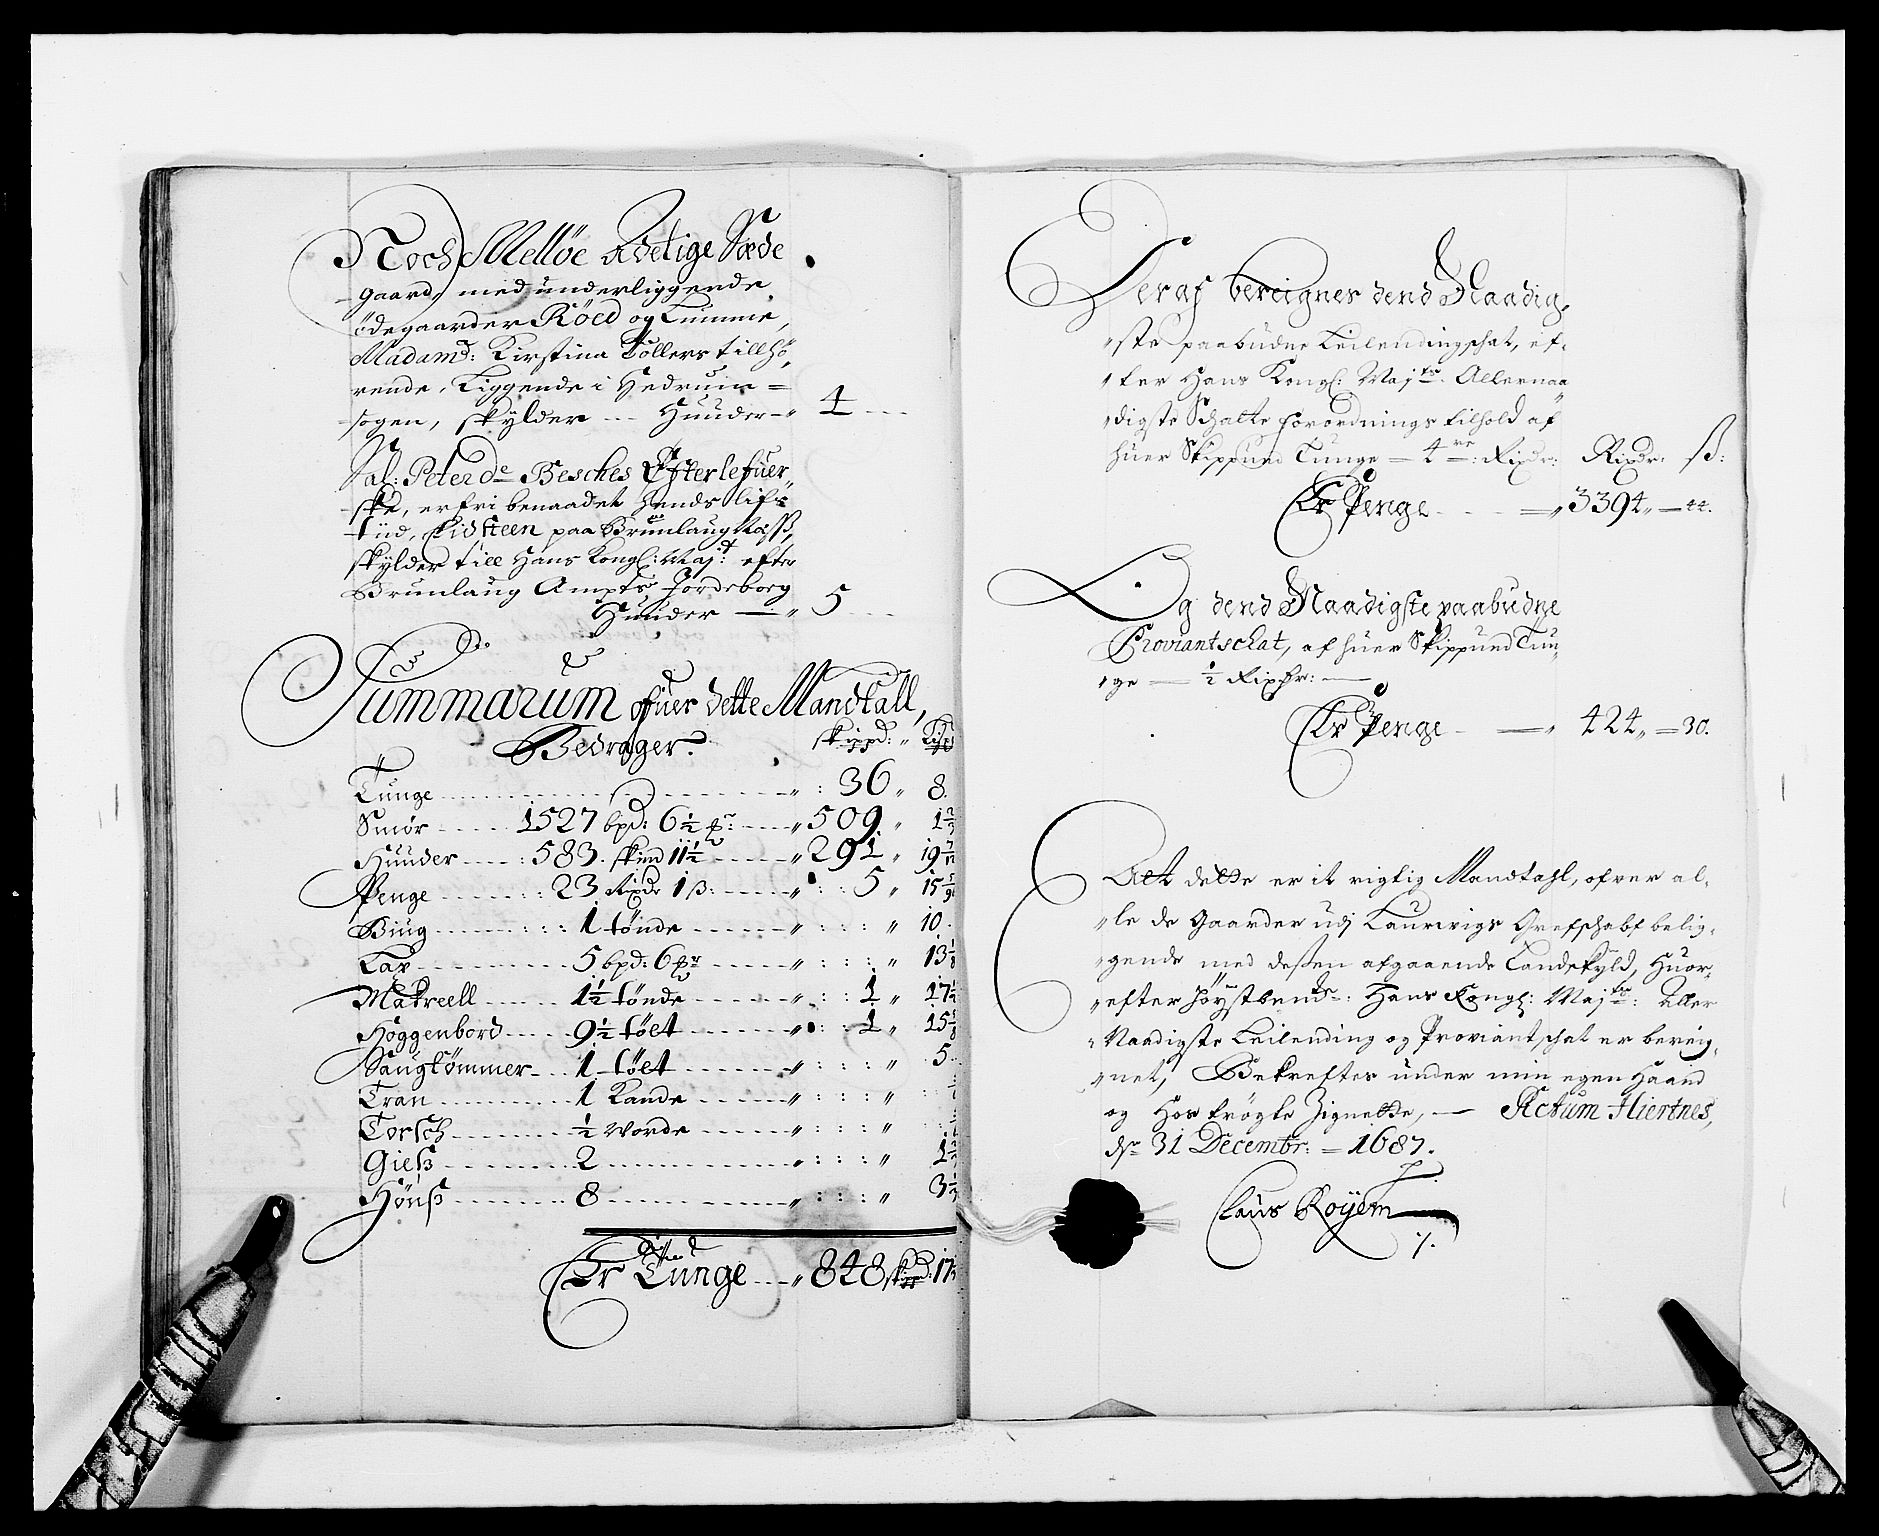 Noch Melløe Adelige Sæde
gaard, med underliggende
ødegaarder Röed og Lumme,
Madam: Kirstina Tollers tillhö,
rende, Liggende i Hedrum =
sogen, skylder --- Huuder - 4
Sal: Peter de Besches Efterlefuer,
ske, er fri benaadet hends lifs
tiid, Eidsteen paa Brunlaugnæss,
skylder till Hans Kongl: Maj:t efter
Brunlaug Ampts Jordeborg
Huuder — 5
Summarum ofuer dette Mandtall,
Bedrager. skippd: Lispd
Tunge 36 8.
Smör 1527 bpd: 6½ pr: 509 1⅔
Huuder 583. skind 11½ 291 19 7/12
Penge 23 Rixdr 1 ß: 5 15
Biug 1 tönde 10.
Lax 5 bpd: 6 pr 13
Makreell 1½ tönde 1 17½
Höggenbord 9½ tölt 1 15
Saugtömmer 1 tölt 5
Tran 1 Kande
Torsch ½ Vorde
Gieß 2 1
Hönß 8 3
Er Tunge 848 skippd: 17
Deraf bereignes dend Naadig,
ste paabudne Leilendingschat, ef,
ter Hans Kongl: Maj:ts Allernaa
digste Schatte forordnings tilhold af
huer Skippund Tunge = 4re: Rixdr: Rixdr: ß:
Er Penge 3394 = 44.
Og dend Naadigste paabudne
Proviantschat, af huer Skippund Tun,
ge — ½ Rixdr: —
Er Penge — 424 = 30.
Att dette er it rigtig Mandtahl, ofver al,
le de Gaarder udj Laurvigs Grefschabf belig,
gende med deßen afgaaende Landskyld, Huor,
efter höystbemte: Hans Kongl: Maj:ts: Aller
Naadigste Leilending og Proviantschat er bereig,
net, Bekreftes under min egen Haand
og Hos trögte Zignette, — Actum Hiertnes,
dr 31 Decembr: = 1687.
Claus Röyem